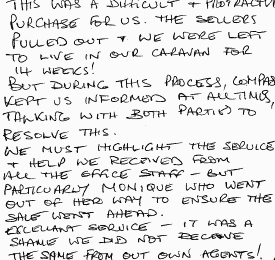 THIS WAS A DIFFICULT + PROTRACTED
PURCHASE FOR US. THE SELLERS
PULLED OUT + WE WERE LEFT
TO LIVE IN OUR CARAVAN FOR
14 WEEKS!
BUT DURING THIS PROCESS, COMPAS
KEPT US INFORMED AT ALL TIMES,
TALKING WITH BOTH PARTIES TO
RESOLVE THIS.
WE MUST HIGHLIGHT THE SERVICE
+ HELP WE RECEIVED FROM
ALL THE OFFICE STAFF - BUT
PARTICULARLY MONIQUE WHO WENT
OUT OF HER WAY TO ENSURE THE
SALE WENT AHEAD.
EXCELLENT SERVICE - IT WAS A
SHAME WE DID NOT RECEIVE
THE SAME FROM OUR OWN AGENTS!